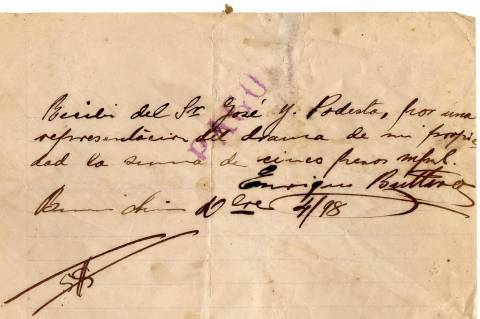 Recibí del Sr José J. Podesta, por una
representación del drama de mi propie
dad la suma de cinco pesos m/nl.
PAGO
Enrique Buttaro
Buenos Aires Dbre 4/98
5$